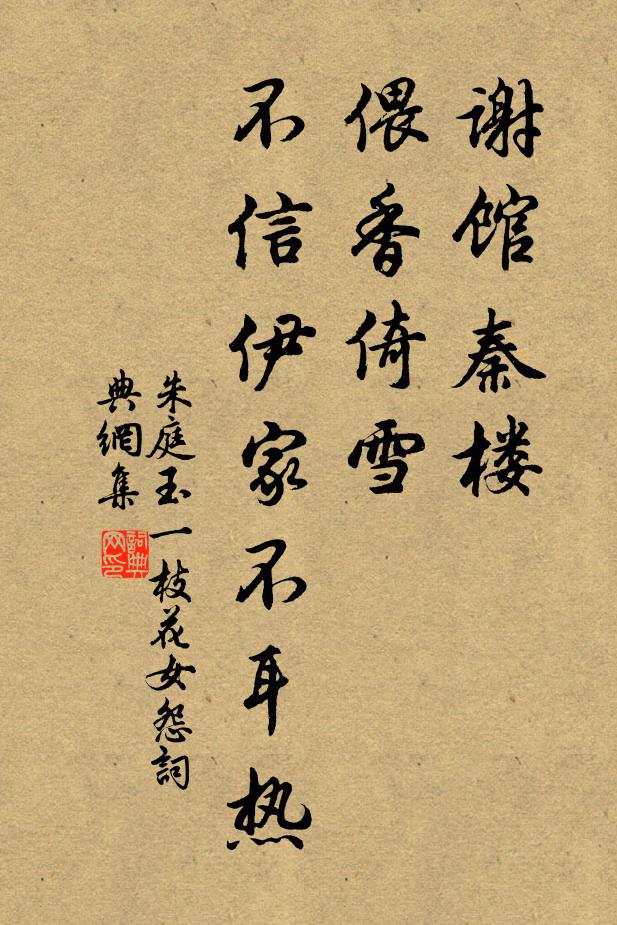 谢馆秦楼
偎香倚雪
不信伊家不耳热
朱庭玉一枝花女怨詞
典網集
詞典网印